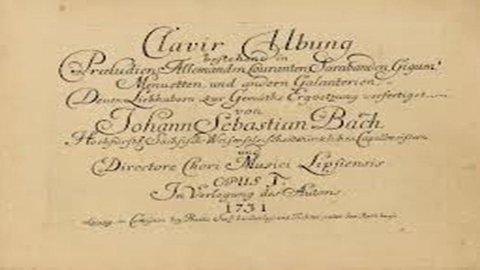 Clavir Ubung
bestehend in
Præludien, Allemanden, Couranten, Sarabanden, Giguen,
Menuetten, und andern Galanterien;
Denen Liebhabern zur Gemüths Ergoetzung verfertiget
von
Johann Sebastian Bach
Hochfürstl. Sächsisch-Weisenfelsischen würcklichen Capellmeistern
und
Directore Chori Musici Lipsiensis
OPUS I.
In Verlegung des Autoris
1731
Leipzig, in Commission bey